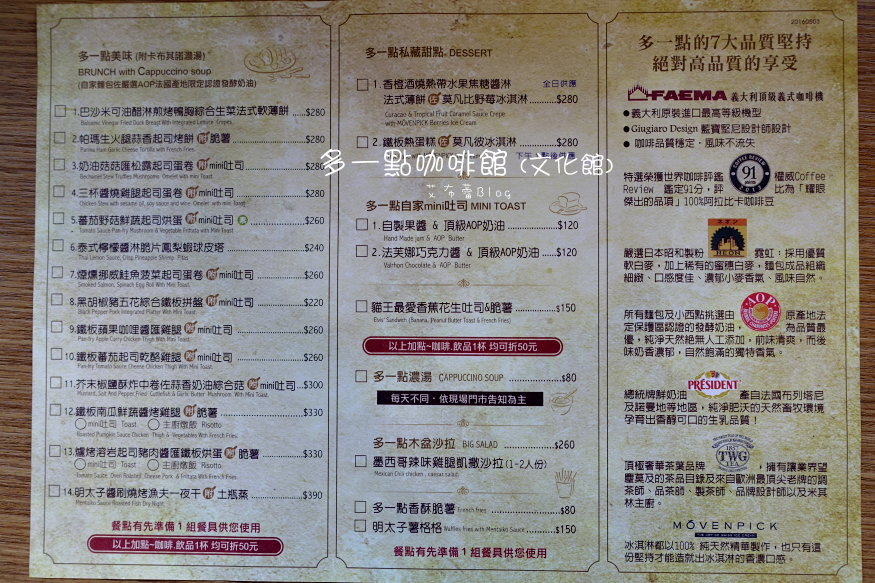 多一點美味 (附卡布其諾濃湯)
BRUNCH with Cappuccino soup
(自家麵包佐嚴選AOP法國產地限定認證發酵奶油)
1.巴沙米可油醋淋煎烤鴨胸綜合生菜法式軟薄餅 $280
Balsamic Vinegar Fried Duck Breast With Integrated Lettuce Crepes.
2.帕瑪生火腿蒜香起司烤餅 附 脆薯 $280
Parma Ham Garlic Cheese Tortilla with French Fries.
3.奶油菇菇匯松露起司蛋卷 附 mini吐司 $280
4.三杯醬燒雞腿起司蛋卷 附 mini吐司 $280
5.蕃茄野菇鮮蔬起司烘蛋 附 mini吐司 $260
Tomato Sauce Pan-fry Mushroom & Vegetable Frittata with Mini Toast
6.泰式檸檬醬淋脆片鳳梨蝦球皮塔 $240
Thai Lemon Sauce, Crisp Pineapple Shrimp Pitas
7.煙燻挪威鮭魚菠菜起司蛋卷 附 mini吐司 $260
Smoked Salmon, Spinach Egg Roll With Mini Toast.
8.黑胡椒豬五花綜合鐵板拼盤 附 mini吐司 $220
Black Pepper Pork Integrated Platter With Mini Toast
9.鐵板蘋果咖哩醬匯雞腿 附 mini吐司 $260
Pan-fry Apple Curry Chicken Thigh With Mini Toast.
10.鐵板蕃茄起司乾酪雞腿 附 mini吐司 $260
Pan-fry Tomato Sauce Cheese Chicken Thigh With Mini Toast.
11.芥末椒鹽酥炸中卷佐蒜香奶油綜合菇 附 mini吐司 $300
Mustard, Salt And Pepper Fried Cuttlefish & Garlic Butter Mushroom With Mini Toast.
12.鐵板南瓜鮮蔬醬烤雞腿 附 脆薯 $330
mini吐司 Toast 主廚燉飯 Risotto
Roasted Pumpkin Sauce Chicken Thigh & Vegetables With French Fries.
13.爐烤溶岩起司豬肉醬匯鐵板烘蛋 附 脆薯 $330
mini吐司 Toast 主廚燉飯 Risotto
Tomato Sauce Oven Roasted Cheese Pork & Frittata With French Fries
14.明太子醬刷燒烤漁夫一夜干 附 土瓶蒸 $390
Mentaiko Sauce Roasted Fish Dry Night
餐點有先準備1組餐具供您使用
以上加點~咖啡.飲品1杯 均可折50元
多一點私藏甜點. DESSERT
1.香橙酒燒熱帶水果焦糖醬淋 全日供應
法式薄餅 佐 莫凡比野莓冰淇淋 $280
Curacao & Tropical Fruit Caramel Sauce Crepe
with MÖVENPICK Berries Ice Cream
2.鐵板熱蛋糕 佐 莫凡彼冰淇淋 $280
多一點咖啡館 (文化館)
艾布蕾Blog
多一點自家mini吐司 MINI TOAST
1.自製果醬 & 頂級AOP奶油 $120
Hand Made jam & AOP Butter
2.法芙娜巧克力醬 & 頂級AOP奶油 $120
Valrhon Chocolate & AOP Butter
貓王最愛香蕉花生吐司&脆薯 $150
Elvis' Sandwith (Banana, Peanut Butter Toast & French Fries)
以上加點~咖啡.飲品1杯 均可折50元
多一點濃湯 CAPPUCCINO SOUP $80
每天不同．依現場門市告知為主
多一點木盆沙拉 BIG SALAD $260
墨西哥辣味雞腿凱撒沙拉(1-2人份)
Mexican Chili chicken. caesar salad
多一點香酥脆薯 French fries $80
明太子薯格格 Waffles fries with Mentaiko Sauce $150
餐點有先準備1組餐具供您使用
20160503
多一點的7大品質堅持
絕對高品質的享受
FAEMA 義大利頂級義式咖啡機
● 義大利原裝進口最高等級機型
● Giugiaro Design 藍寶堅尼設計師設計
● 咖啡品質穩定，風味不流失
COFFEE REVIEW 91
特選榮獲世界咖啡評鑑 權威Coffee
Review 鑑定91分，評 比為「耀眼
傑出的品項」100%阿拉比卡咖啡豆
ネオン
NEON
嚴選日本昭和製粉 霓虹：採用優質
軟白麥，加上稀有的蜜穗白麥，麵包成品組織
細緻、口感度佳、濃郁小麥香氣、風味自然。
AOP
所有麵包及小西點挑選由 原產地法
定保護區認證的發酵奶油， 為品質最
優，純淨天然絕無人工添加，前味清爽，而後
味奶香濃郁，自然飽滿的獨特香氣。
PRÉSIDENT
總統牌鮮奶油 產自法國布列塔尼
及諾曼地等地區，純淨肥沃的天然畜牧環境
孕育出香醇可口的生乳品質！
TWG
TEA
頂極奢華茶葉品牌 ，擁有讓業界望
塵莫及的茶品目錄及來自歐洲最頂尖老牌的調
茶師、品茶師、製茶師、品牌設計師以及米其
林主廚。
MÖVENPICK
THE ART OF SWISS ICE CREAM
冰淇淋都以100% 純天然精華製作，也只有這
份堅持才能造就出冰淇淋的香濃口感。